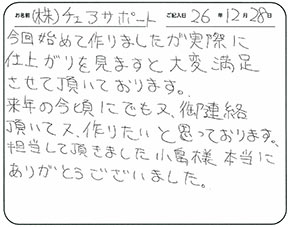 お名前 (株)チェスサポート ご記入日 26年12月28日
今回始めて作りましたが実際に
仕上がりを見ますと大変満足
させて頂いております。
来年の今頃にでも又、御連絡
頂いて又、作りたいと思っております。
担当して頂きました小畠様本当に
ありがとうございました。